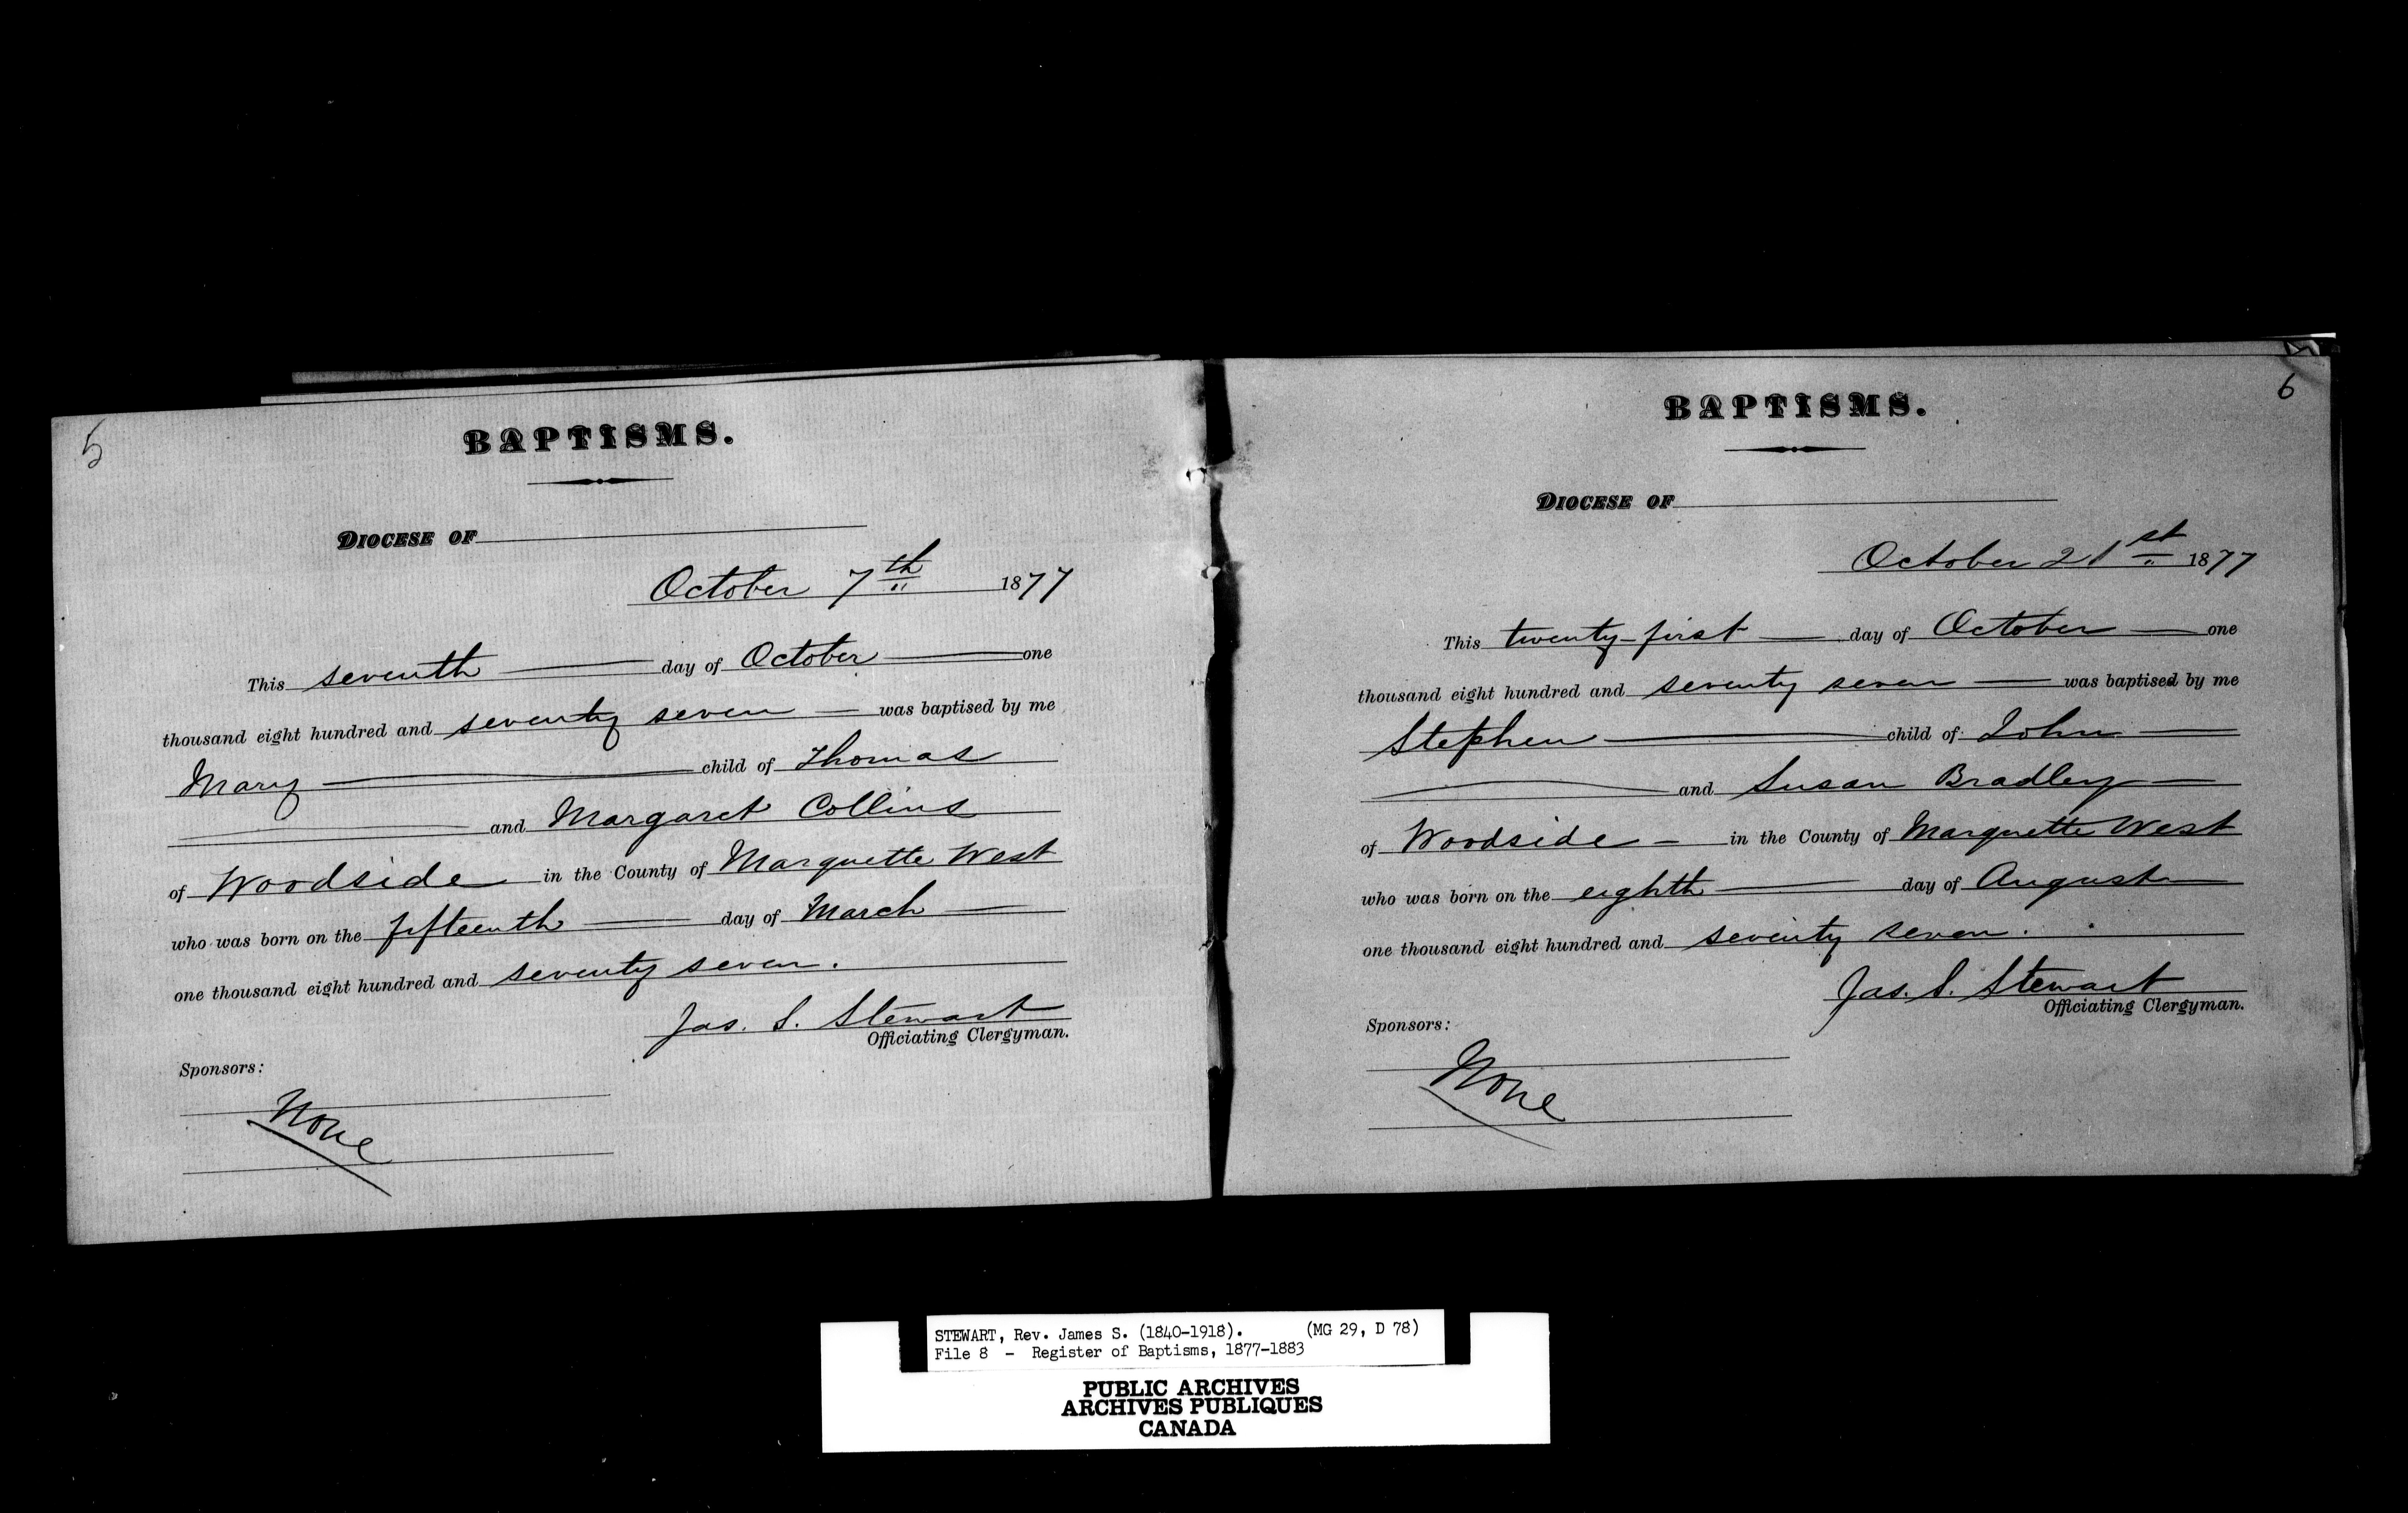 5
BAPTISMS.
DIOCESE OF
October 7th 1877
This seventh day of October one
thousand eight hundred and seventy seven was baptised by me
Mary child of Thomas
and Margaret Collins
of Woodside in the County of Marquette West
who was born on the fifteenth day of March
one thousand eight hundred and seventy seven.
Jas. S. Stewart
Officiating Clergyman.
Sponsors:
None
6
BAPTISMS.
DIOCESE OF
October 21st 1877
This twenty-first day of October one
thousand eight hundred and seventy seven was baptised by me
Stephen child of John
and Susan Bradley
of Woodside in the County of Marquette West
who was born on the eighth day of August
one thousand eight hundred and seventy seven.
Jas. S. Stewart
Officiating Clergyman.
Sponsors:
None
STEWART, Rev. James S. (1840-1918). (MG 29, D 78)
File 8 - Register of Baptisms, 1877-1883
PUBLIC ARCHIVES
ARCHIVES PUBLIQUES
CANADA